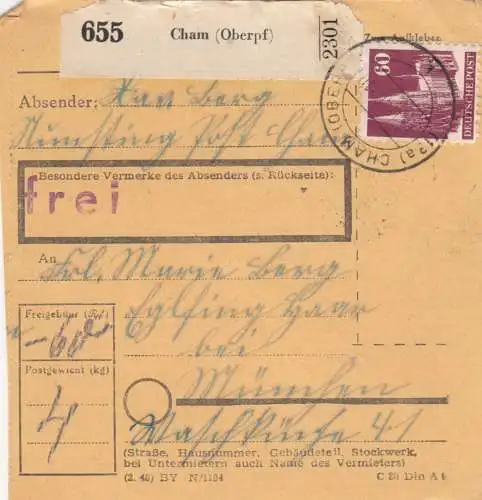 655 Cham (Oberpf) 2301
Zum Aufkleben
60
DEUTSCHE POST
(13a) CHAM (OBERPF
Absender: Xav Berg
Post Cham
Besondere Vermerke des Absenders (s. Rückseite):
frei
An
Frl. Marie Berg
Eglfing Haar
bei
München
Waschküche 41
Freigebühr (Rℳ)
- 60
Postgewicht (kg)
4
(Straße, Hausnummer, Gebäudeteil, Stockwerk,
bei Untermietern auch Name des Vermieters)
(2. 48) BY N/1184 C 20 Din A 6